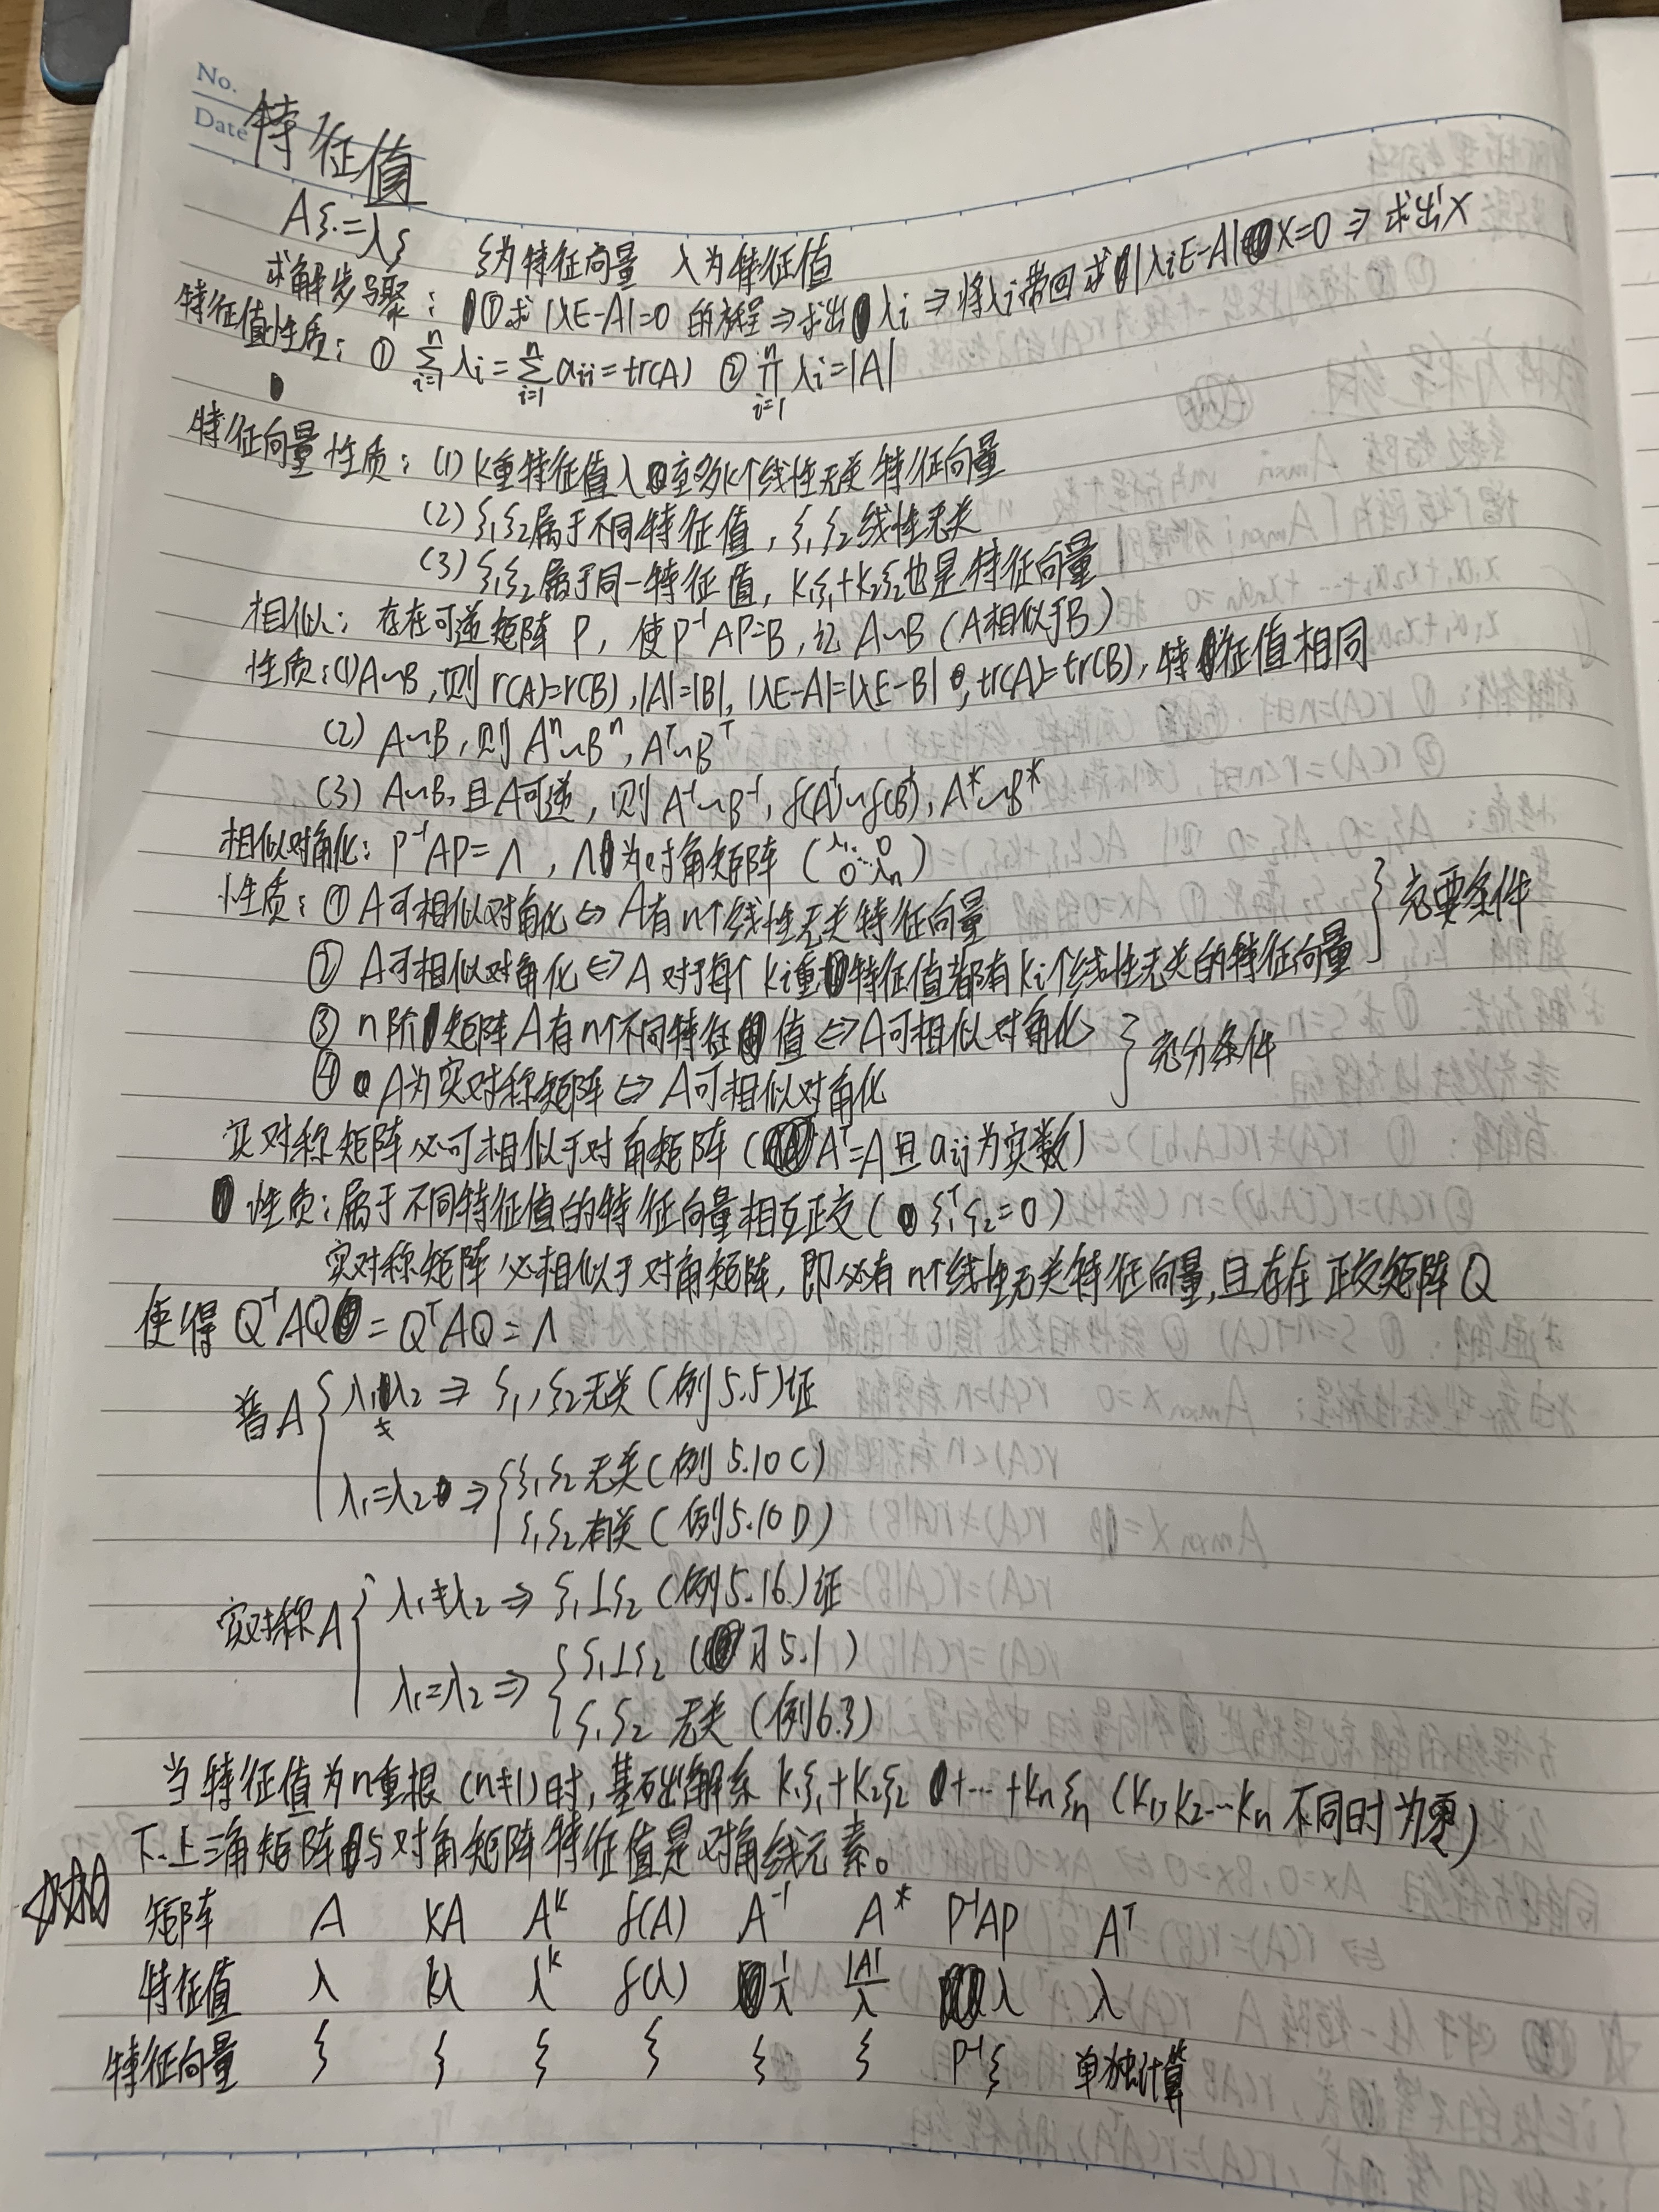 No.
Date
特征值
Aξ=λξ ξ为特征向量 λ为特征值
求解步骤：①求|λE-A|=0的方程⇒求出λi⇒将λi带回求|λiE-A|X=0⇒求出X
特征值性质：① ∑_{i=1}^{n} λi=∑_{i=1}^{n} aii=tr(A) ② ∏_{i=1}^{n} λi=|A|
特征向量性质：(1) K重特征值λ至多K个线性无关特征向量
(2) ξ₁ξ₂属于不同特征值，ξ₁ξ₂线性无关
(3) ξ₁ξ₂属于同一特征值，K₁ξ₁+K₂ξ₂也是特征向量
相似：存在可逆矩阵P，使P⁻¹AP=B，记A∽B（A相似于B）
性质：(1)A∽B，则r(A)=r(B)，|A|=|B|，|λE-A|=|λE-B|，tr(A)=tr(B)，特征值相同
(2) A∽B，则Aⁿ∽Bⁿ，Aᵀ∽Bᵀ
(3) A∽B，且A可逆，则A⁻¹∽B⁻¹，f(A⁻¹)∽f(B⁻¹)，A*∽B*
相似对角化：P⁻¹AP=Λ，Λ为对角矩阵（λ₁ 0 0 λn）
性质：①A可相似对角化⇔A有n个线性无关特征向量
②A可相似对角化⇔A对于每个Ki重特征值都有Ki个线性无关的特征向量 } 充要条件
③ n阶矩阵A有n个不同特征值⇔A可相似对角化
④ A为实对称矩阵⇔A可相似对角化 } 充分条件
实对称矩阵必可相似于对角矩阵（Aᵀ=A且aij为实数）
性质：属于不同特征值的特征向量相互正交（ξ₁ᵀξ₂=0）
实对称矩阵必相似于对角矩阵，即必有n个线性无关特征向量，且存在正交矩阵Q
使得Q⁻¹AQ=QᵀAQ=Λ
普A { λ₁≠λ₂⇒ξ₁，ξ₂无关（例5.5）证
λ₁=λ₂⇒{ ξ₁ξ₂无关（例5.10C）
ξ₁ξ₂有关（例5.10D）
实对称A { λ₁≠λ₂⇒ξ₁⊥ξ₂（例5.16）证
λ₁=λ₂⇒{ ξ₁⊥ξ₂（习5.1）
ξ₁ξ₂无关（例6.3）
当特征值为n重根（n≠1）时，基础解系K₁ξ₁+K₂ξ₂+…+Knξn（K₁,K₂…Kn不同时为零）
下.上三角矩阵与对角矩阵特征值是对角线元素。
矩阵 A KA Aᵏ f(A) A⁻¹ A* P⁻¹AP Aᵀ
特征值 λ Kλ λᵏ f(λ) 1/λ |A|/λ λ λ
特征向量 ξ ξ ξ ξ ξ ξ P⁻¹ξ 单独计算